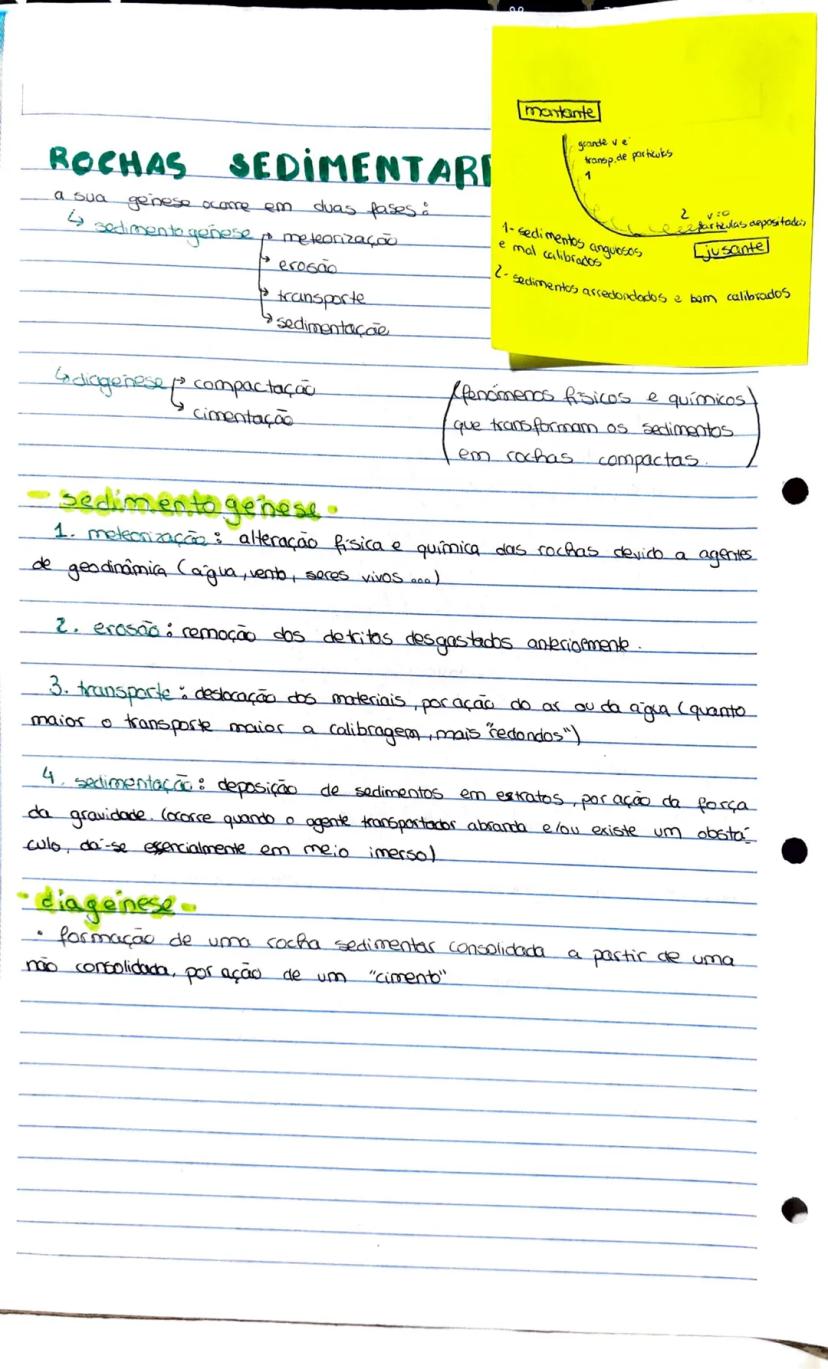 montante
grande v e
transp. de particulas
1
2 v=0
particulas depositadas
jusante
1- sedimentos angulosos
e mal calibrados
2- sedimentos arredondados e bem calibrados
ROCHAS SEDIMENTAR
a sua génese ocorre em duas fases:
↳ sedimentogénese → meteorização
→ erosão
→ transporte
→ sedimentação
↳ diagénese → compactação
→ cimentação
(fenómenos físicos e químicos)
que transformam os sedimentos
em rochas compactas.
- sedimentogénese -
1. meteorização: alteração física e química das rochas devido a agentes
de geodinâmica (água, vento, seres vivos ...)
2. erosão: remoção dos detritos desgastados anteriormente.
3. transporte: deslocação dos materiais, por ação do ar ou da água (quanto
maior o transporte maior a calibragem, mais "redondos")
4. sedimentação: deposição de sedimentos em estratos, por ação da força
da gravidade. (ocorre quando o agente transportador abranda e/ou existe um obstá-
culo, dá-se essencialmente em meio imerso)
- diagénese -
• formação de uma rocha sedimentar consolidada a partir de uma
não consolidada, por ação de um "cimento"